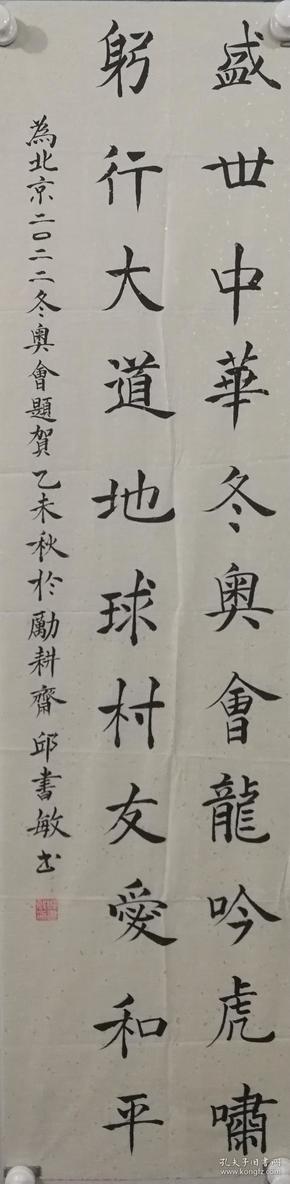 盛世中華冬奧會龍吟虎嘯
躬行大道地球村友愛和平
為北京二〇二二冬奧會題賀乙未秋於勵耕齋邱書敏书
孔夫子旧书网